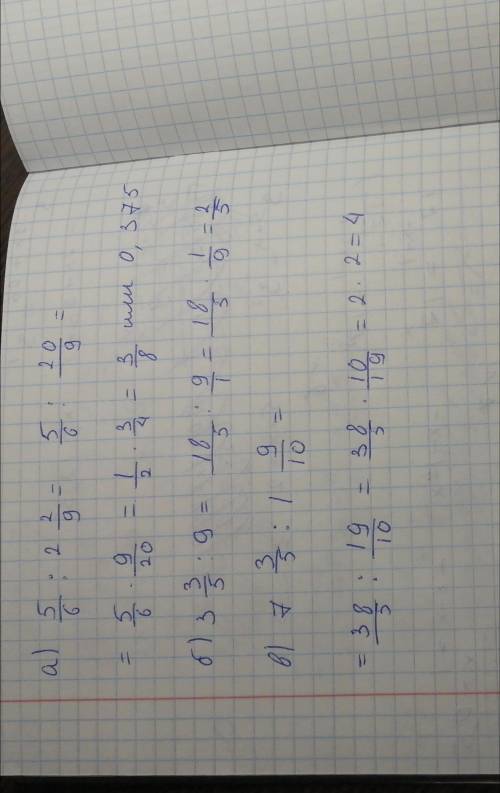 а) 5/6 : 2 2/9 = 5/6 : 20/9 =
= 5/6 · 9/20 = 1/2 · 3/4 = 3/8 или 0,375
б) 3 3/5 : 9 = 18/5 : 9/1 = 18/5 · 1/9 = 2/5
в) 7 3/5 : 1 9/10 =
= 38/5 : 19/10 = 38/5 · 10/19 = 2 · 2 = 4